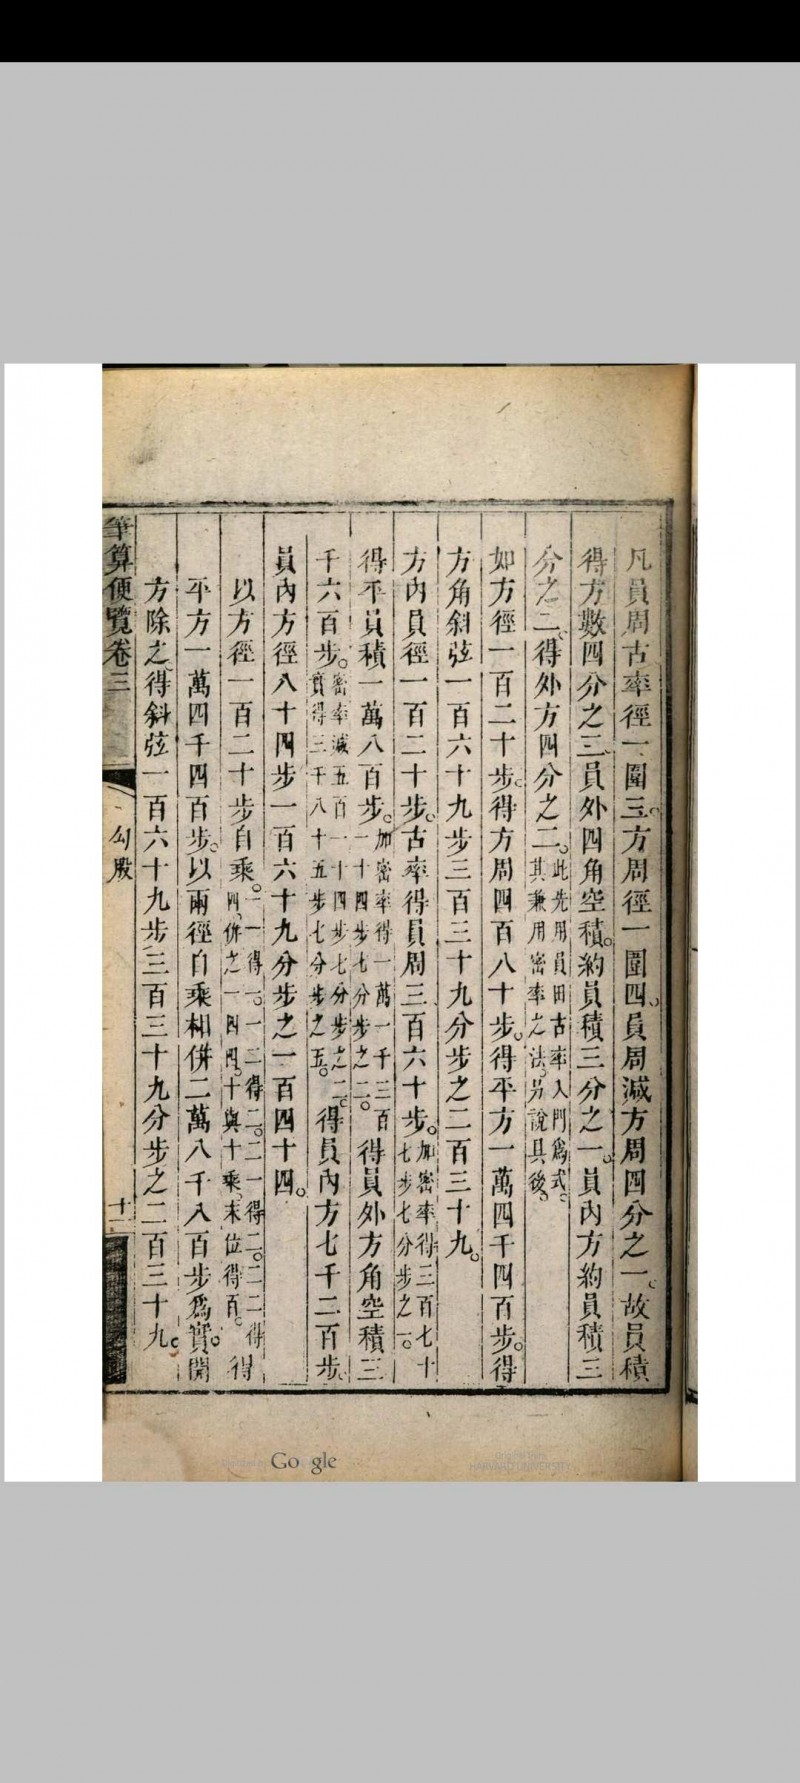 凡員周古率徑一圍三。方周徑一圍四。員周減方周四分之一。故員積
得方數四分之三。員外四角空積。約員積三分之一。員內方約員積三
分之二。得外方四分之二。此先用員田古率入門為式。
其兼用密率之法。另說具後。
如方徑一百二十步。得方周四百八十步。得平方一萬四千四百步。得
方角斜弦一百六十九步三百三十九分步之二百三十九。
方內員徑一百二十步。古率得員周三百六十步。加密率得三百七十
七步七分步之一。
得平員積一萬八百步。加密率得一萬一千三百
一十四步七分步之二。得員外方角空積三
千六百步。密率減五百一十四步七分步之二。
實得三千八十五步七分步之五。得員內方七千二百步。
員內方徑八十四步一百六十九分步之一百四十四。
以方徑一百二十步自乘。一一得一。一二得二。二一得二。二二得
四。併之一四四。十與十乘。末位得百。得
平方一萬四千四百步。以兩徑自乘相併二萬八千八百步為實。開
方除之。得斜弦一百六十九步三百三十九分步之二百三十九。
筆算便覽卷三
勾股
十一
Google